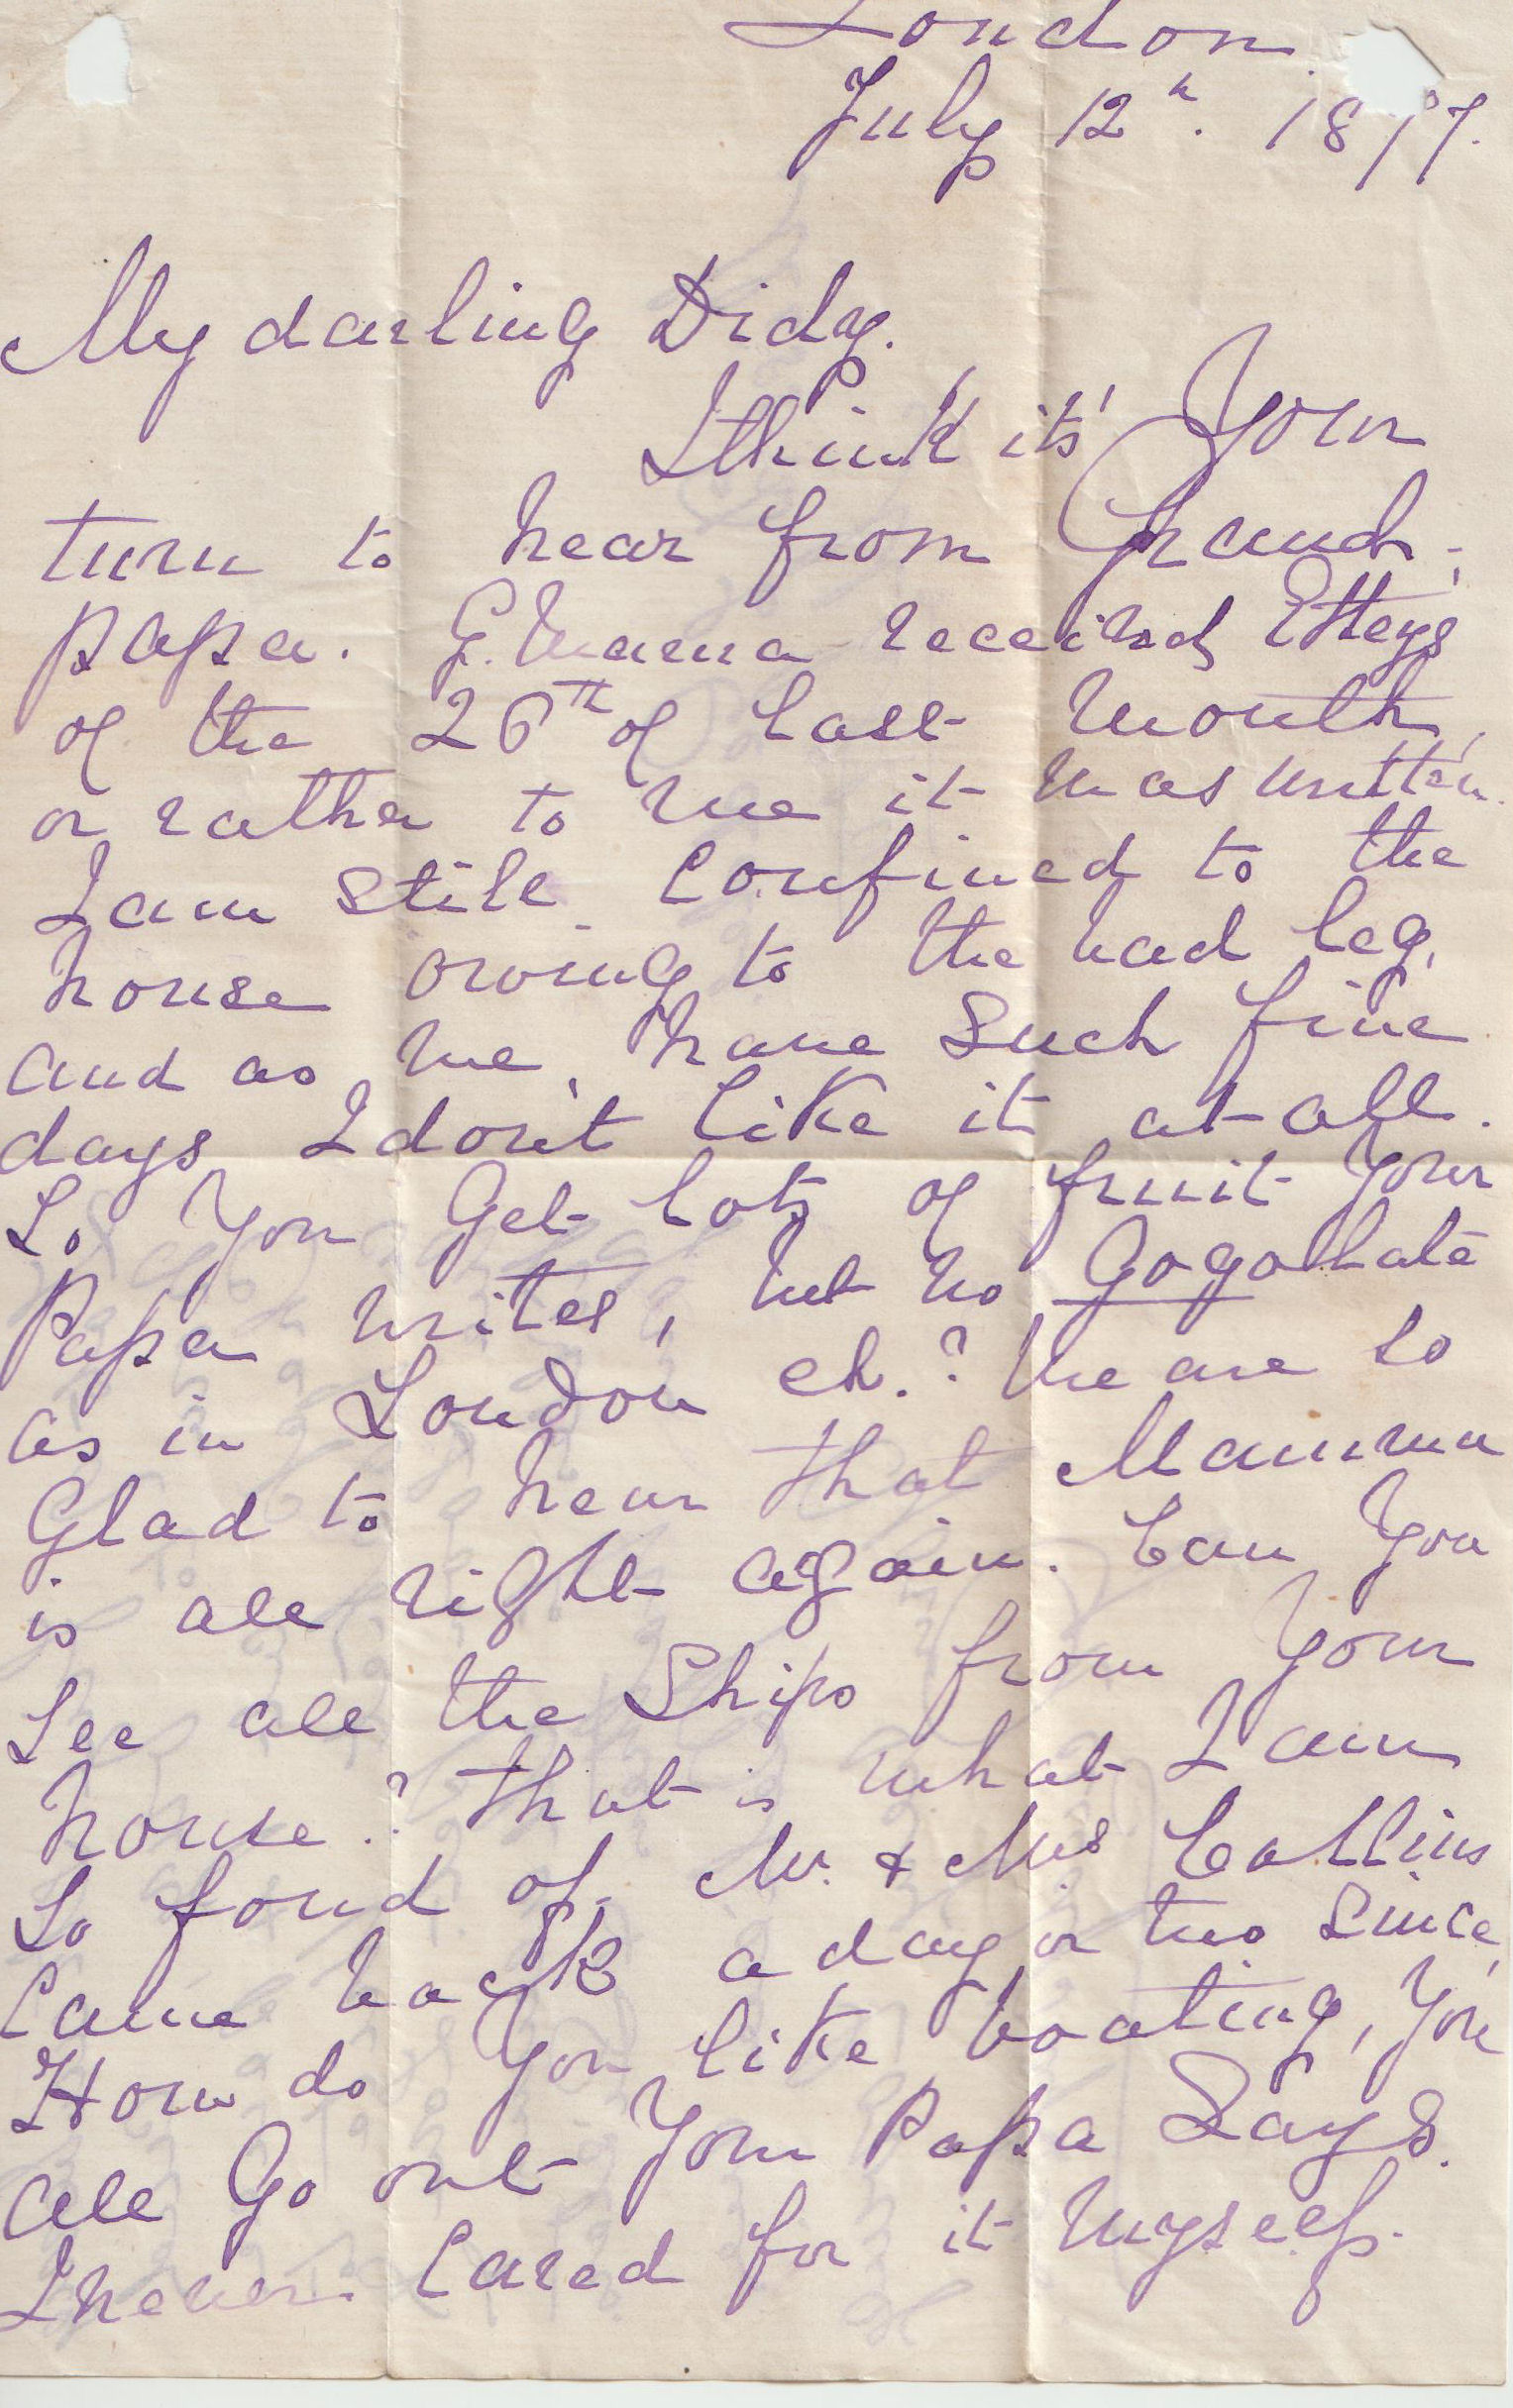 London
July 12th. 1897.
My darling Didy.
I think it's Your
turn to hear from Grand,
papa. G. Mama received Etteys
of the 26th of last Month,
or rather to me it was written.
I am still confined to the
house owing to the bad leg,
and as we have such fine
days I don't like it at all.
So You Get lots of fruit Your
Papa writes, but no Gogollate
as in London eh.? We are so
Glad to hear that Mamma
is all right again. Can You
See all the Ships from Your
house.? That is what I am
So fond of. Mr. & Mrs Collins
Came back a day or two Since,
How do You like boating, You
all Go out Your Papa Says.
I never cared for it Myself.